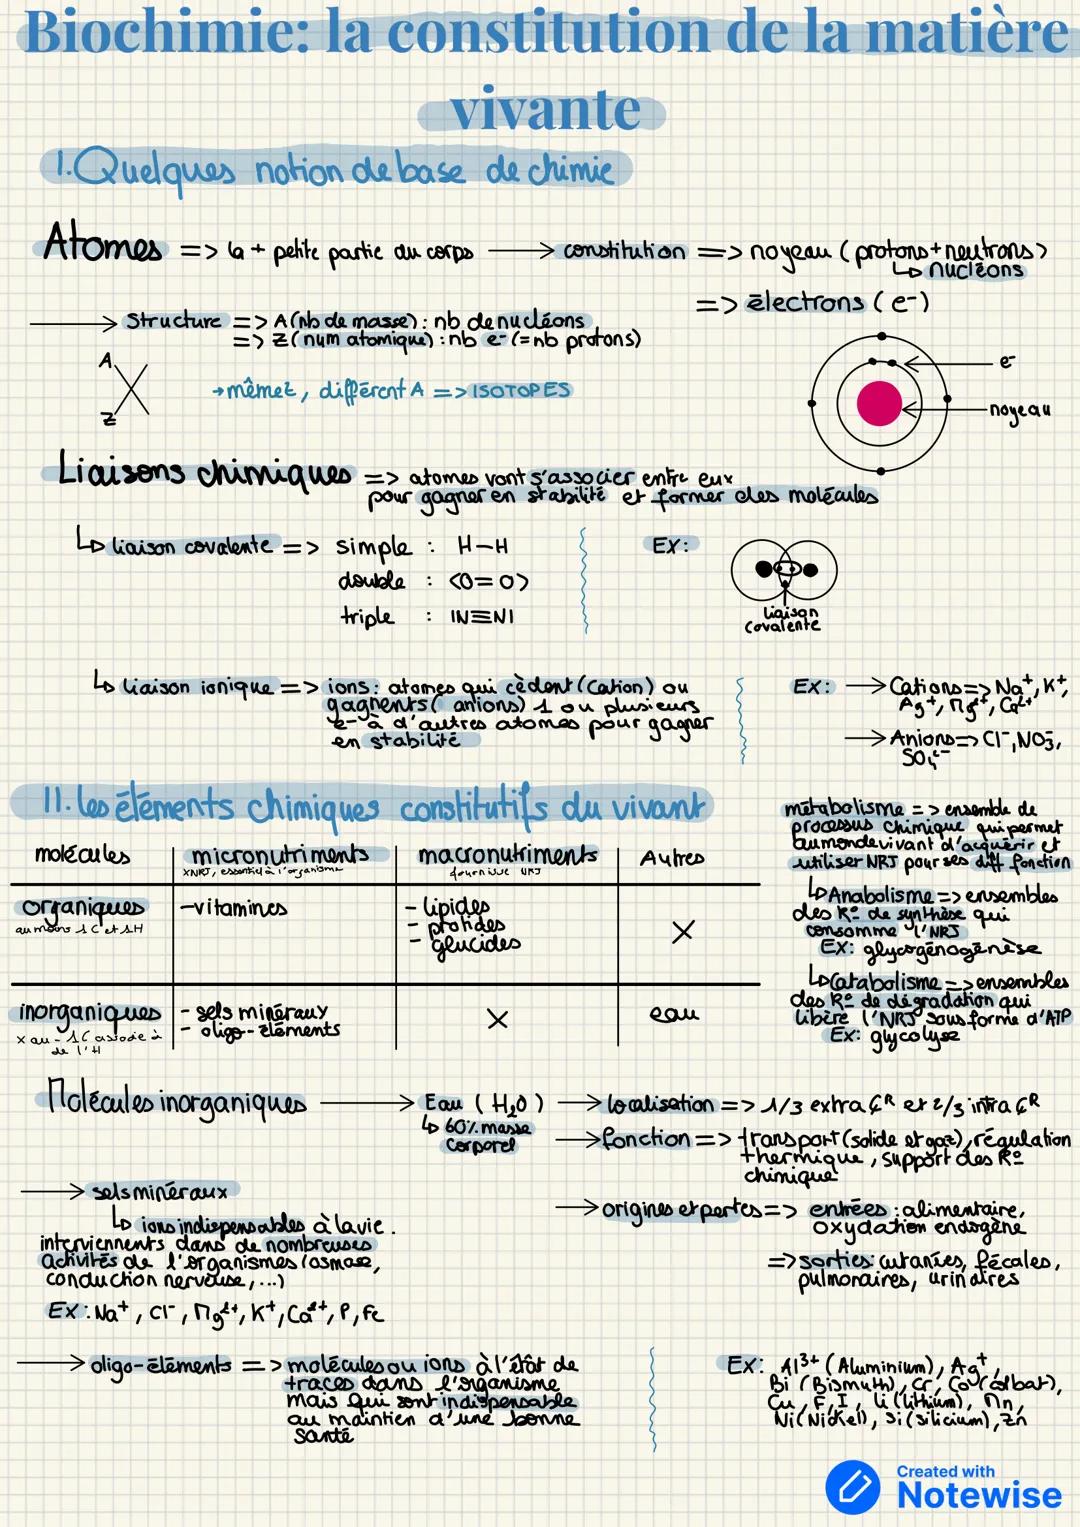 Biochimie: la constitution de la matière
vivante
I. Quelques notion de base de chimie
Atomes => la + petite partie du corps → constitution => noyeau (protons+neutrons)
↳ nucléons
=> électrons (e-)
→ Structure => A (nb de masse) : nb de nucléons
=> Z (num atomique) : nb e- (= nb protons)
A
Z
→ même Z, différent A => ISOTOPES
e-
noyeau
Liaisons chimiques => atomes vont s'associer entre eux
pour gagner en stabilité et former des molécules
↳ liaison covalente => simple : H-H
double : <O=O>
triple : IN≡NI
EX:
liaison
covalente
↳ liaison ionique => ions: atomes qui cèdent (Cation) ou
gagnents (anions) 1 ou plusieurs
e- à d'autres atomes pour gagner
en stabilité
EX: → Cations => Na⁺, K⁺,
Ag⁺, Mg²⁺, Ca²⁺
→ Anions => Cl⁻, NO₃⁻,
SO₄²⁻
II. les éléments chimiques constitutifs du vivant
molécules | micronutriments | macronutriments | Autres
XNRJ, essentiel à l'organisme | fournisse NRJ
organiques | -vitamines | - lipides | X
au moins 1 C et 1H | - protides
- glucides
inorganiques | - sels minéraux | X | eau
x au - 1C associé à | - oligo-éléments
de l'H
métabolisme => ensemble de
processus chimique qui permet
au monde vivant d'acquérir et
utiliser NRJ pour ses diff fonction
↳ Anabolisme => ensembles
des R° de synthèse qui
consomme l'NRJ
EX: glycogénogénèse
↳ Catabolisme => ensembles
des R° de dégradation qui
libère l'NRJ sous forme d'ATP
EX: glycolyse
Molécules inorganiques → Eau (H₂O) → localisation => 1/3 extra çR et 2/3 intra çR
↳ 60% masse
corporel
→ fonction => transport (solide et gaz), régulation
thermique, support des R°
chimique
→ origines et pertes => entrées : alimentaire,
oxydation endogène
=> sorties: cutanées, fécales,
pulmonaires, urinaires
→ sels minéraux
↳ ions indispensables à la vie.
interviennents dans de nombreuses
activités de l'organismes (osmose,
conduction nerveuse, ...)
EX: Na⁺, Cl⁻, Mg²⁺, K⁺, Ca²⁺, P, Fe
→ oligo-éléments => molécules ou ions à l'état de
traces dans l'organisme
mais qui sont indispensable
au maintien d'une bonne
santé
EX: Al³⁺ (Aluminium), Ag⁺,
Bi (Bismuth), Cr, Co (Colbat),
Cu, F, I, Li (lithium), Mn,
Ni (Nickel), Si (silicium), Zn
Created with
Notewise